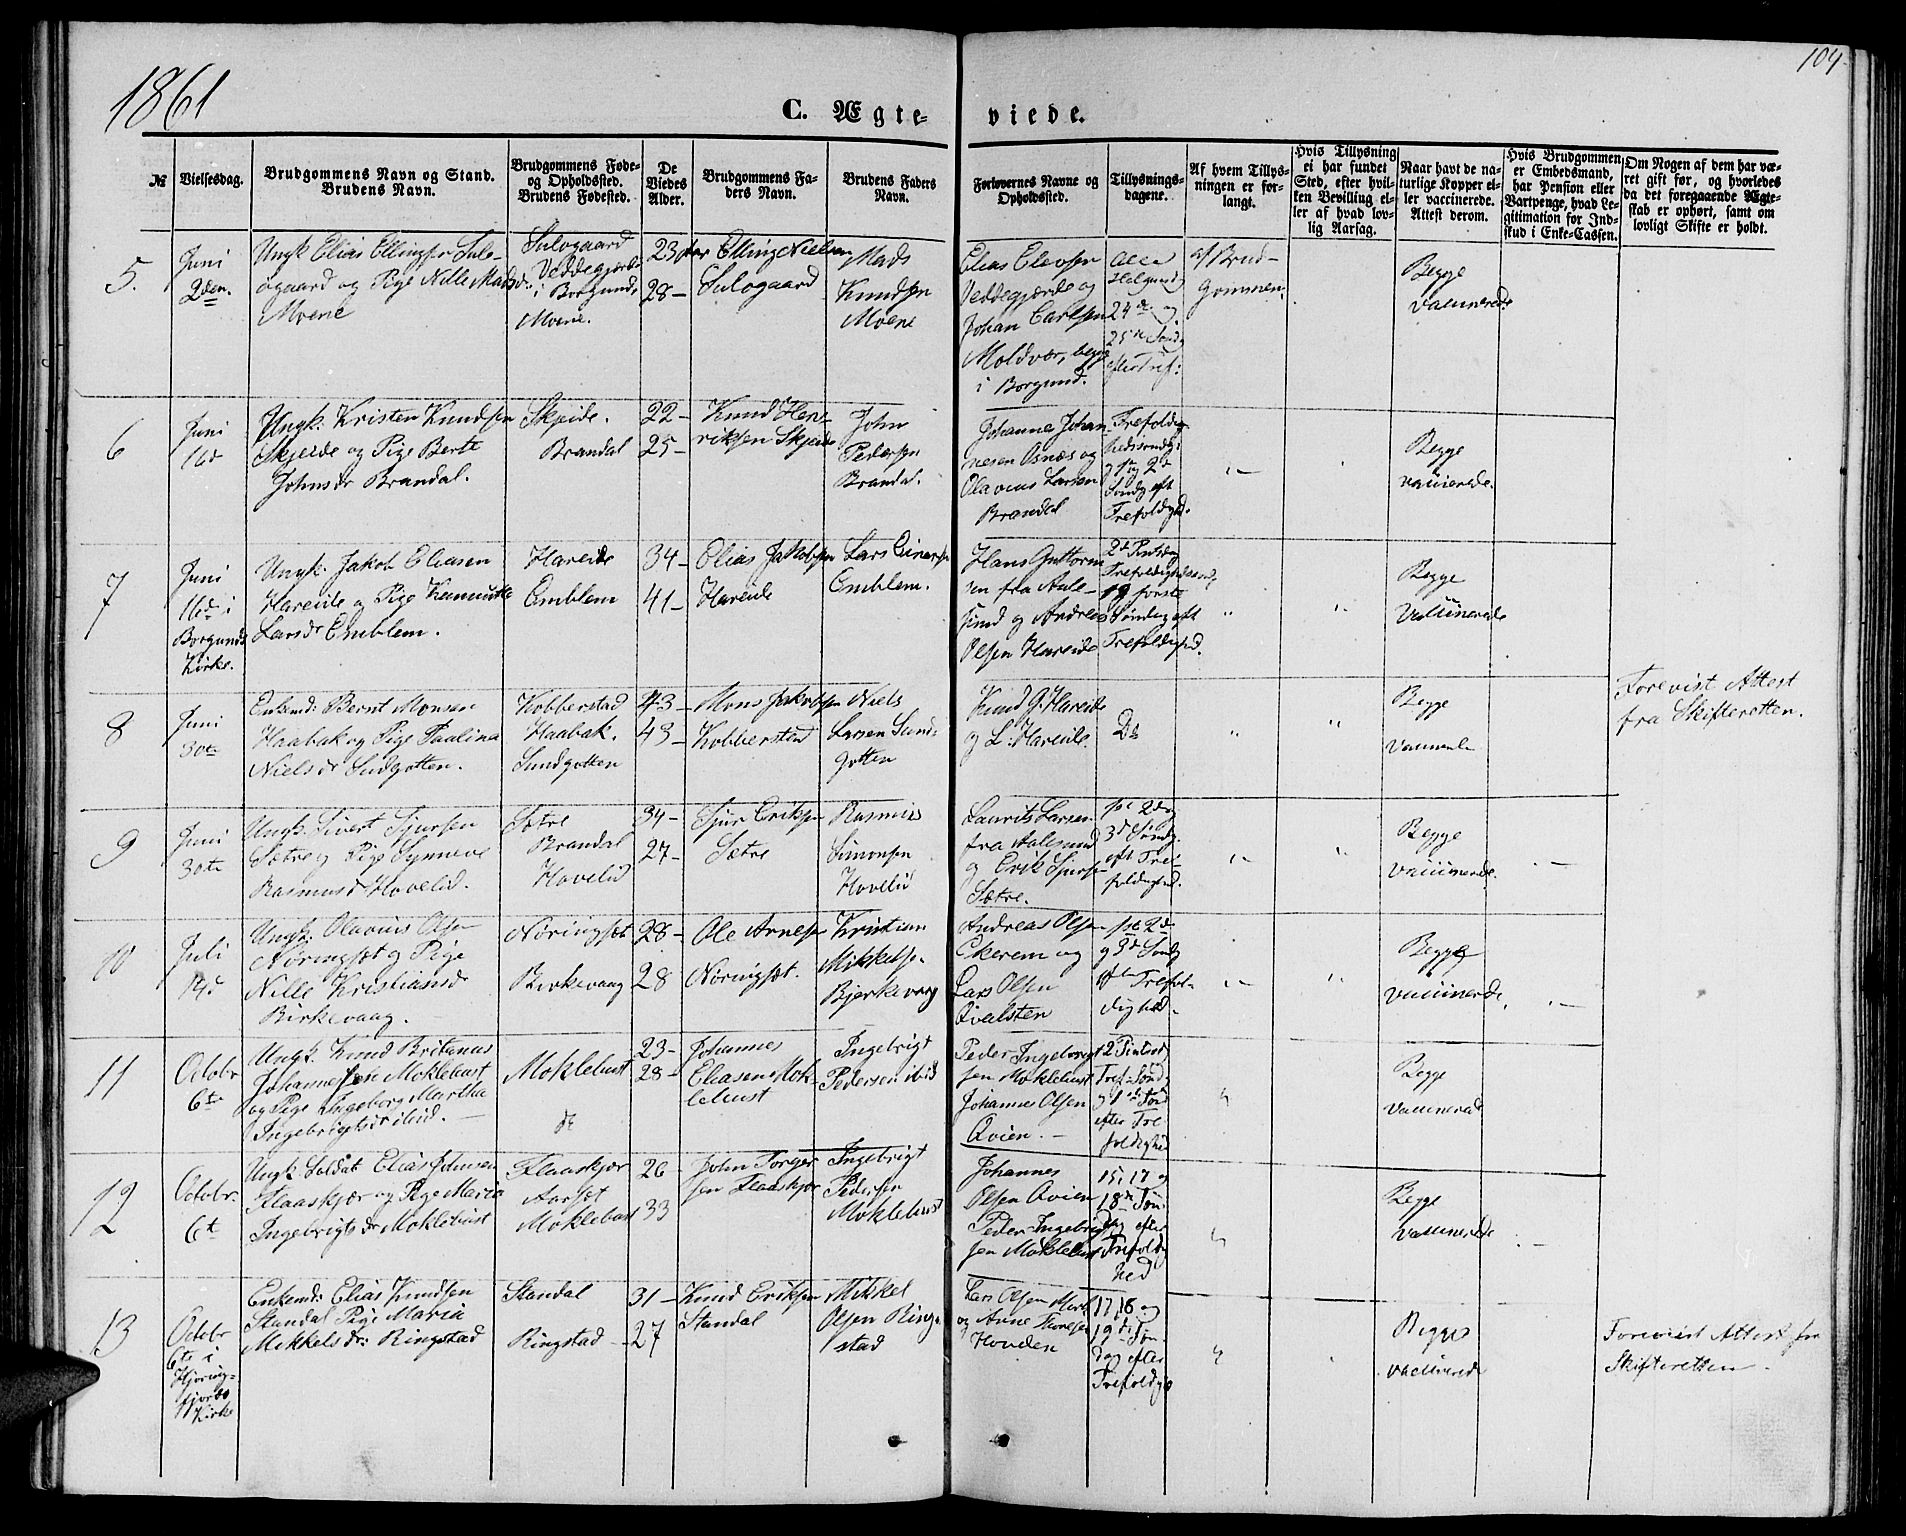 1861
104
C. Ægte- viede.
№
Vielsesdag.
Brudgommens Navn og Stand.
Brudens Navn.
Brudgommens Føde-
og Opholdssted.
Brudens Fødested.
De
Viedes
Alder.
Brudgommens Fa-
ders Navn.
Brudens Faders
Navn.
Forlovernes Navne og
Opholdssted.
Tillysnings-
dagene.
Af hvem Tillys-
ningen er for-
langt.
Hvis Tillysning
ei har fundet
Sted, efter hvil-
ken Bevilling el-
ler af hvad lov-
lig Aarsag.
Naar havt de na-
turlige Kopper el-
ler vaccinerede.
Attest derom.
Hvis Brudgommen
er Embedsmand,
har Pension eller
Vartpenge, hvad Le-
gitimation for Ind-
skud i Enke-Cassen.
Om Nogen af dem har væ-
ret gift før, og hvorledes
da det foregaaende Ægte-
skab er ophørt, samt om
lovligt Skifte er holdt.
5.
Juni
2den.
Ungk Elias Ellingsen Sulo-
ogaard og Pige Nille Madsd.
Moene
Sulogaard
Veddegjærde
i Borgund,
Moene.
23 Aar
28 –
Elling Nielsen
Sulogaard
Mads
Knudsen
Moene
Elias Elevsen
Veddegjærde og
Johan Carlsen
Moldvær, begge
i Borgund.
24de og
25de Sønd
efter Tref:
af Brud-
gommen.
Begge
vaccinerede
6
Juni
16d
Ungk. Kristen Knudsen
Skjeide og Pige Berte
Johnsdr Brandal.
Skjeide.
Brandal
22 –
25 –
Knud Hen-
riksen Skjeide
John
Pedersen
Brandal.
Johannes Johan-
nesen Osnæs og
Olavus Larsen
Brandal
Trefoldig-
hedssondg:
og 1ste og 2de
Søndg eft
Trefoldighd.
"–
Begge
vaccinerede.
7
Juni
16d i
Borgunds
Kirke.
Ungk. Jakob Eliasen
Hareide og Pige
Larsdr Emblem.
Hareide
Emblem
34 –
41 –
Elias Jakobsen
Hareide
Lars Einarsen
Emblem.
Hans Guttorm-
sen fra Aale-
sund og Andreas
Olsen Hareide
2d Pintsdag
Trefoldighedssond,
og første
Søndag eft
Trefoldighed.
"
"
Begge
vaccinerede
8
Juni
30te
Enkmd: Bernt Monsen
Haabak og Pige Paulina
Nielsdr Sundgotten.
Kobberstad
Haabak.
Sundgotten
43 –
43 –
Mons Jakobsen
Kobberstad
Niels
Larsen Sund-
gotten
Knud G. Hareide
og L. Hareide.
Do
"
"
Begge
Forevist Attest
fra Skifteretten.
9
Juni
30te
Ungk. Sivert Sjursen
Sætre og Pige Synneve
Rasmusdr Hovelid.
Sætre
Brandal
Hovelid
34 –
27 –
Sjur Eriksen
Sætre
Rasmus
Simonsen
Hovelid
Laurits Larsen
fra Aalesund
og Erik Sjursen
Sætre.
1ste 2d og
3d Søndg.
eft Tre-
foldighed.
"–
"
Begge
vaccinerede.
"–
10
Juli
14d
Ungk. Olavus Olsen
Nøringset og Pige
Nille Kristiansdr
Birkevaag.
Nøringset
Birkevaag
28 –
28
Ole Arnesen
Nøringset.
Kristian
Mikkelsen
Bjerkevaag
Andreas Olsen
Ekerem og
Lars Olsen
Qvalsten
1ste 2d
og 3d Søndg
efter Trefol-
dighed.
"–
"
Begge
vaccinerede.
"–
11
Octobr
6te
Ungk. Knud Britanus
Johannesen Moklebust
og Pige Ingeborg Martha
Ingebrigtsdr ibid.
Moklebust
do
23 –
28 –
Johannes
Eliasen Mok-
lebust
Ingebrigt
Pedersen ibid
Peder Ingebrigt-
sen Moklebust
Johannes Olsen
Qvien.
2 Pintsedg
Tref: Sondg
og 1ste Søn
efter Tre-
foldighed
"
Begge
vaccinerede
12
Octobr.
6te
Ungk. Soldat Elias Johnsen
Flaaskjær og Pige Maria
Ingebrigtsdr Moklebust
Flaaskjær
Aarset
Moklebust
26
33
John Torger-
sen Flaaskjær
Ingebrigt
Pedersen
Moklebust
Johannes
Olsen Qvien
Peder Ingebrigt-
sen Moklebust
15, 17 og
18de Søn-
dag efter
Trefoldig
hed
"
Begge
vaccinerede
"–
13
Octobr
6te i
Hjoring-
fjords
Kirke
Enkemd: Elias Knudsen
Standal Pige Maria
Mikkelsdr: Ringstad
Standal
Ringstad
31 –
27
Knud Eriksen
Standal
Mikkel
Olsen Ring-
stad
Lars Olsen Mork
og Arne
Hovden
17, 18 og
19de Søn-
dag efter
Trefoldgh
"
Begge
vaccinerede
Forevist Attest fra
Skifteretten.